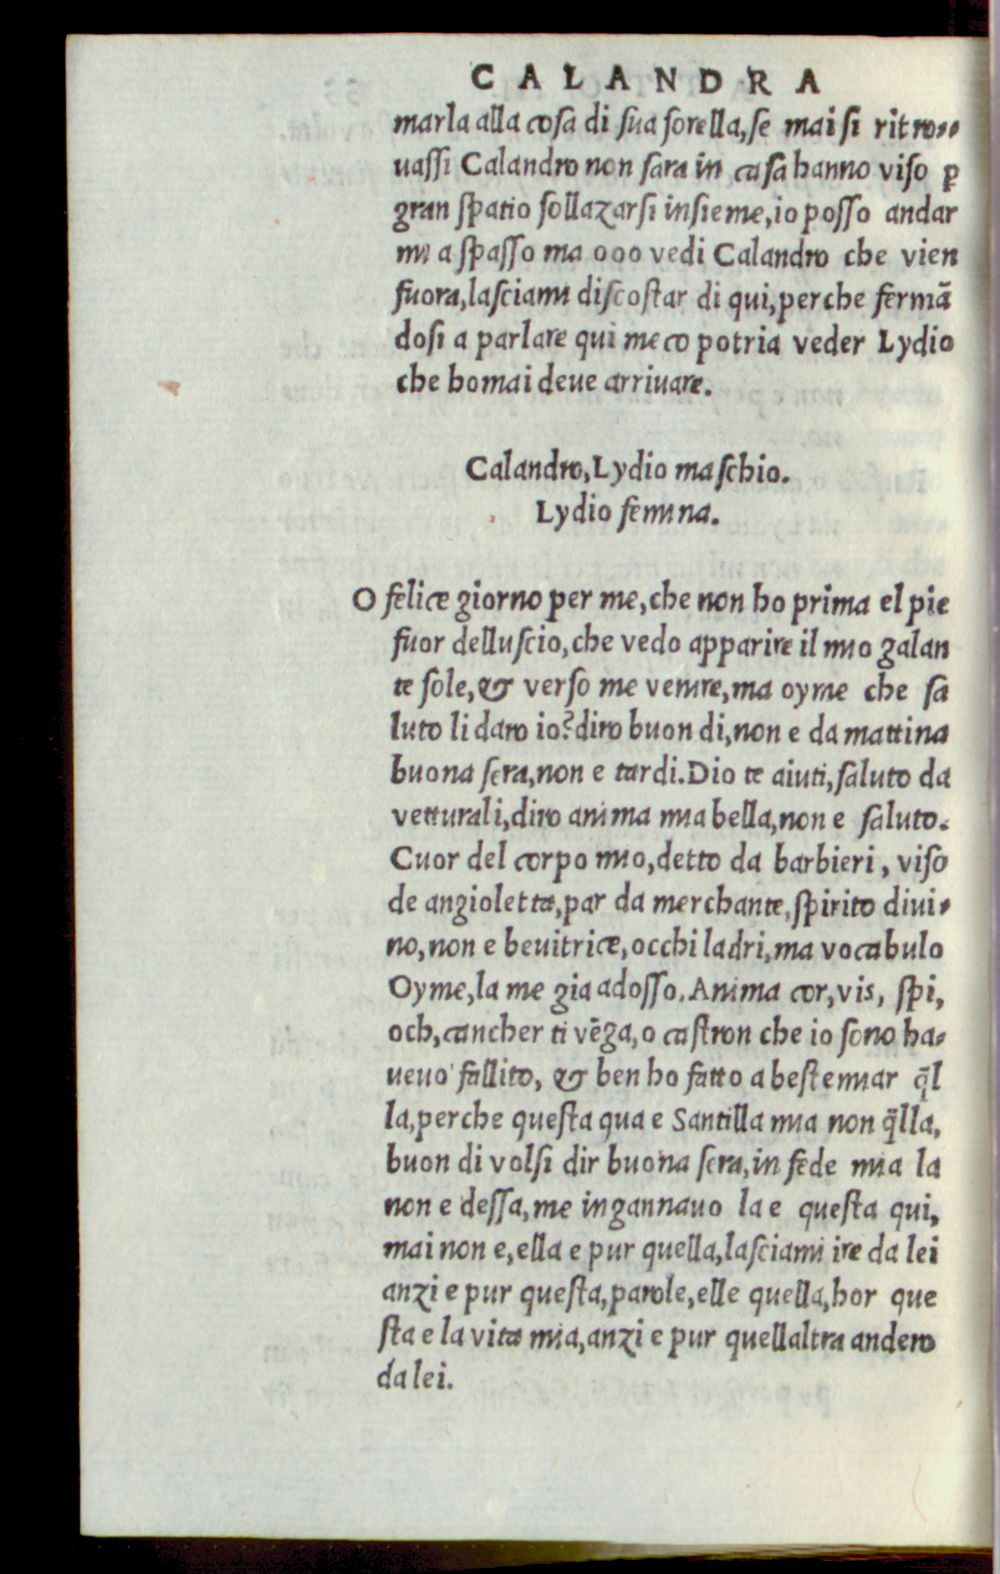 CALANDRA
marla alla cosa di sua sorella, se mai si ritro-
uassi Calandro non sara in casa hanno viso ꝑ
gran spatio sollazarsi insieme, io posso andar
mi a spasso ma ooo vedi Calandro che vien
fuora, lasciami discostar di qui, perche fermā
dosi a parlare qui meco potria veder Lydio
che homai deue arriuare.
Calandro, Lydio maschio.
Lydio femina.
O felice giorno per me, che non ho prima el pie
fuor delluscio, che vedo apparire il mio galan
te sole, & verso me venire, ma oyme che sa
luto li daro io? diro buon di, non e da mattina
buona sera, non e tardi. Dio te aiuti, saluto da
vetturali, diro anima mia bella, non e saluto.
Cuor del corpo mio, detto da barbieri, viso
de angioletta, par da merchante, spirito diui-
no, non e beuitrice, occhi ladri, ma vocabulo
Oyme, la me gia adosso. Anima cor, vis, spi,
och, cancher ti vēga, o castron che io sono ha-
ueuo fallito, & ben ho fatto a bestemiar q̄l
la, perche questa qua e Santilla mia non q̄lla,
buon di volsi dir buona sera, in fede mia la
non e dessa, me ingannauo la e questa qui,
mai non e, ella e pur quella, lasciami ire da lei
anzi e pur questa, parole, elle quella, hor que
sta e la vita mia, anzi e pur quellaltra andero
da lei.